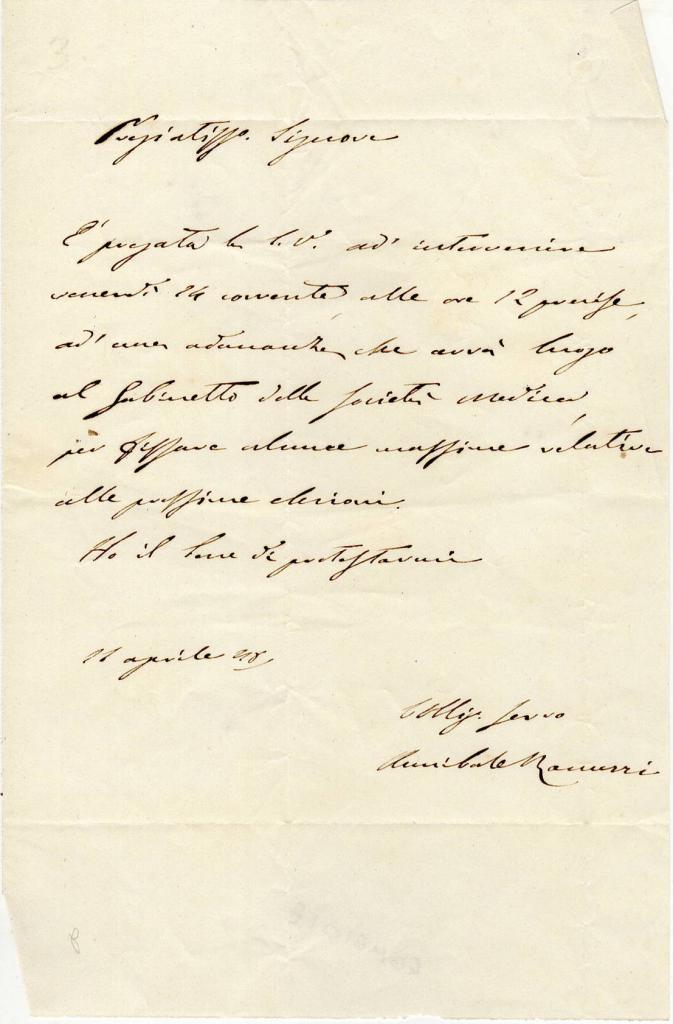 Pregiatisso. Signore
E' pregata la S. V. ad' intervenire
venerdì 14 corrente, alle ore 12 precise,
ad' una adunanza, che avrà luogo
al Gabinetto della Società Medica,
per fissare alcune massime relative
alle prossime elezioni.
Ho il bene di protestarmi
11 aprile 48
Obblig. servo
Annibale Ranuzzi